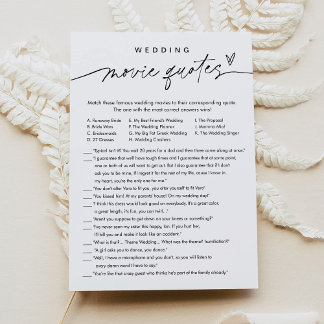 WEDDING
movie quotes
Match these famous wedding movies to their corresponding quote.
The one with the most correct answers wins!
A. Runaway Bride E. My Best Friends Wedding I. The Proposal
B. Bride Wars F. The Wedding Planner J. Mamma Mia!
C. Bridesmaids G. My Big Fat Greek Wedding K. The Wedding Singer
D. 27 Dresses H.
"Typical isn't it! You wait 20 years for a dad and then three come along at once."
"I guarantee that we'll have tough times and I guarantee that at some point,
one or both of us will want to get out. But I also guarantee that if I don't
ask you to be mine, I'll regret it for the rest of my life, cause I know in
my heart, you're the only one for me."
"You don't alter Vera to fit you, you alter yourself to fit Vera!"
"You kissed him! At my parents' house! On my wedding day!"
"I think this dress would look good on everybody. It's a great color,
a great length, its fun, you can twirl..."
"Aren't you suppose to get down on your knees or something?"
"I've never seen my sister this happy, Ian. If you hurt her,
I'll kill you and make it look like an accident."
"What is that?... Theme Wedding... What was the theme? humiliation?"
"A girl asks you to dance, you dance."
"Well, I have a microphone and you don't, so you will listen to
every damn word I have to say."
"You're like that crazy guest who thinks he's part of the family already."